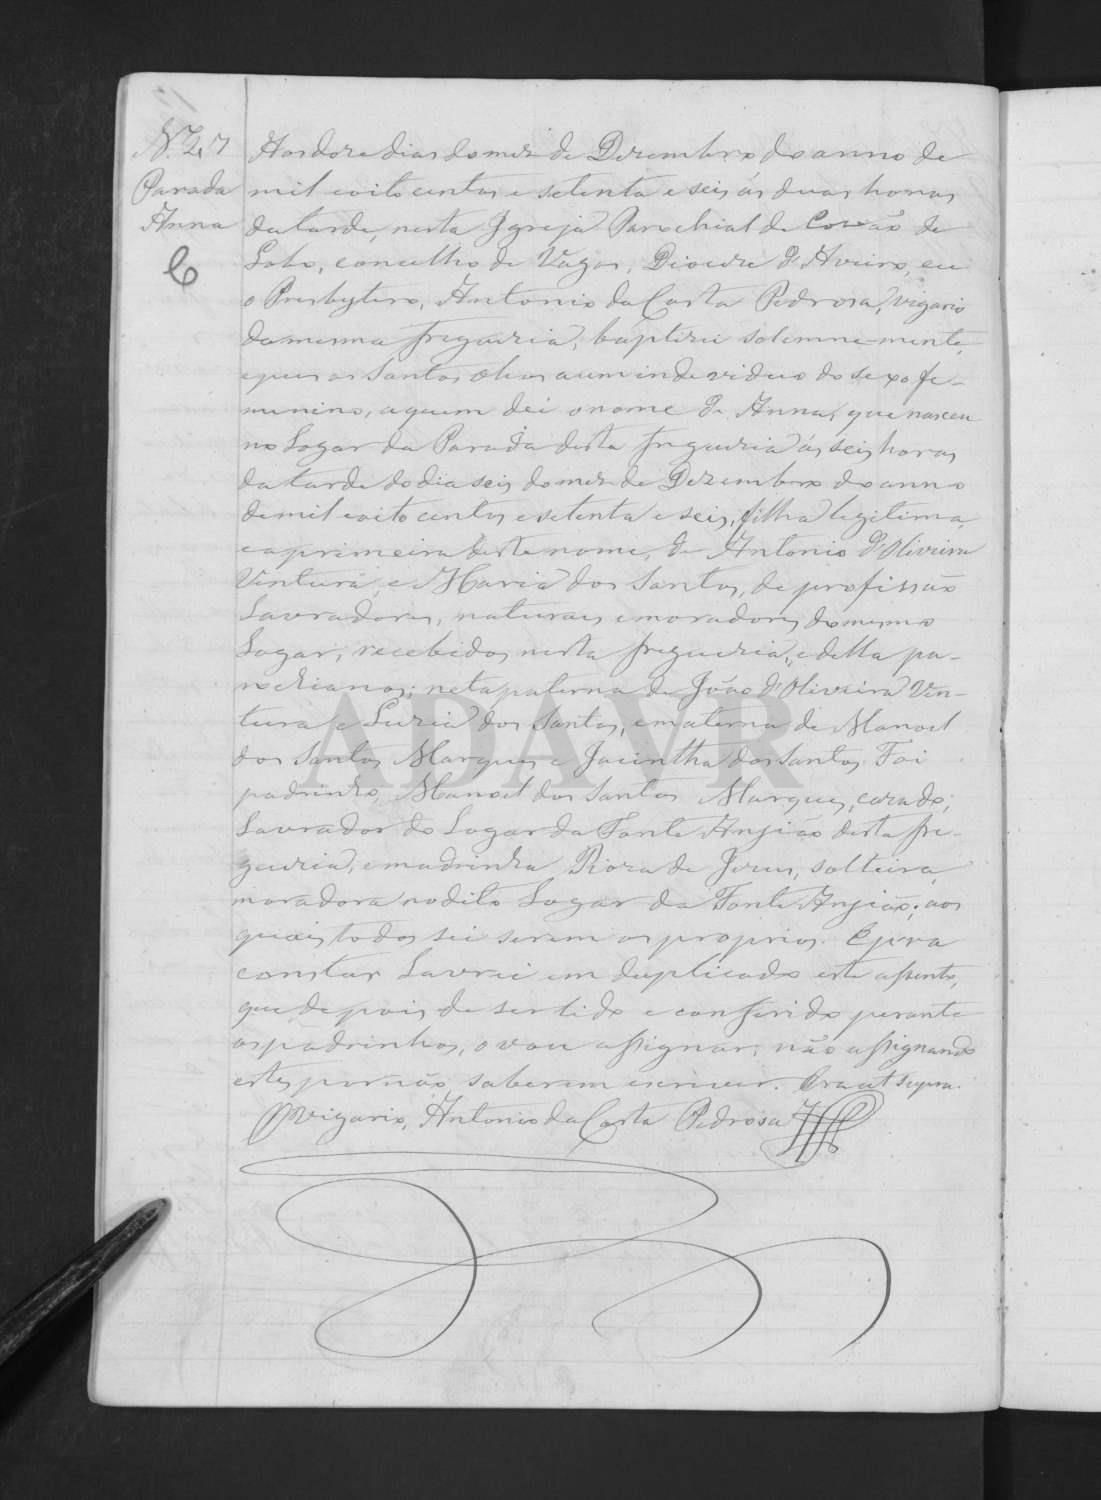 N.º 27
Parada
Anna
C
Aos doze dias do mez de Dezembro do anno de
mil oito centos e setenta e seis ás duas horas
da tarde, nesta Igreja Parochial de Covão de
Lobo, concelho de Vagos, Diocese d'Aveiro, eu
o Presbytero, Antonio da Costa Pedrosa, vigario
da mesma freguezia, baptizei solemne-mente,
e puz os Santos oleos a um individuo do sexo fe-
menino, a quem dei o nome de Anna, que nasceu
no Logar da Parada desta freguezia ás seis horas
da tarde do dia seis do mez de Dezembro do anno
de mil oito centos e setenta e seis, filha legitima,
e a primeira deste nome, de Antonio d'Oliveira
Ventura, e Maria dos Santos, de profissão
Lavradores, naturaes e moradores do mesmo
Logar, recebidos nesta freguezia, e della pa-
rochianos; neta paterna de João d'Oliveira Ven-
tura e Luzia dos Santos, e materna de Manoel
dos Santos Marques e Jacintha dos Santos. Foi
padrinho, Manoel dos Santos Marques, casado,
Lavrador do Logar da Fonte Anjião desta fre-
guezia, e madrinha Roza de Jezus, solteira,
moradora no dito Logar da Fonte Anjião; aos
quaes todos sei serem os proprios. E para
constar Lavrei em duplicado este assento,
que depois de ser lido e conferido perante
os padrinhos, o vou assignar, não assignando
estes por não saberem escrever. Era ut supra.
O Vigario, Antonio da Costa Pedrosa
ADAVR